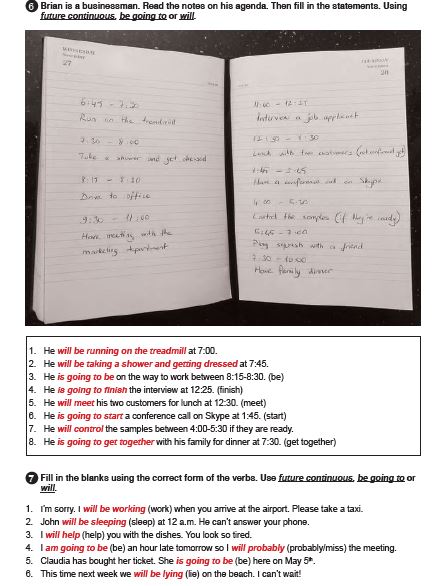 6 Brian is a businessman. Read the notes on his agenda. Then fill in the statements. Using
future continuous, be going to or will.
WEDNESDAY
November
27
6:45 - 7:20
Run on the treadmill
7:30 - 8:00
Take a shower and get dressed
8:15 - 8:30
Drive to office
9:30 - 11:00
Have meeting with the
marketing department
November
28
11:00 - 12:25
Interview a job applicant
12:30 - 1:30
Lunch with two customers (not confirmed yet)
1:45 - 3:45
Have a conference call on Skype
4:00 - 5:30
Control the samples (if they're ready)
5:45 - 7:00
Play squash with a friend
7:30 - 10:00
Have family dinner
1. He will be running on the treadmill at 7:00.
2. He will be taking a shower and getting dressed at 7:45.
3. He is going to be on the way to work between 8:15-8:30. (be)
4. He is going to finish the interview at 12:25. (finish)
5. He will meet his two customers for lunch at 12:30. (meet)
6. He is going to start a conference call on Skype at 1:45. (start)
7. He will control the samples between 4:00-5:30 if they are ready.
8. He is going to get together with his family for dinner at 7:30. (get together)
7 Fill in the blanks using the correct form of the verbs. Use future continuous, be going to or
will.
1. I'm sorry. I will be working (work) when you arrive at the airport. Please take a taxi.
2. John will be sleeping (sleep) at 12 a.m. He can't answer your phone.
3. I will help (help) you with the dishes. You look so tired.
4. I am going to be (be) an hour late tomorrow so I will probably (probably/miss) the meeting.
5. Claudia has bought her ticket. She is going to be (be) here on May 5th.
6. This time next week we will be lying (lie) on the beach. I can't wait!